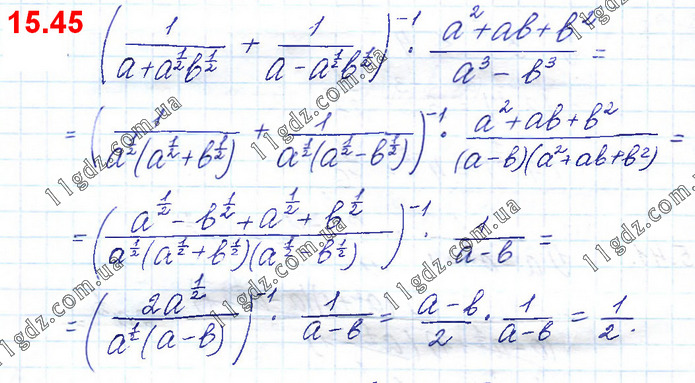 15.45
(1/(a+a^{1/2}b^{1/2}) + 1/(a-a^{1/2}b^{1/2}))^{-1} · (a²+ab+b²)/(a³-b³) =
= (1/(a^{1/2}(a^{1/2}+b^{1/2})) + 1/(a^{1/2}(a^{1/2}-b^{1/2})))^{-1} · (a²+ab+b²)/((a-b)(a²+ab+b²)) =
= ((a^{1/2}-b^{1/2}+a^{1/2}+b^{1/2})/(a^{1/2}(a^{1/2}+b^{1/2})(a^{1/2}-b^{1/2})))^{-1} · 1/(a-b) =
= (2a^{1/2}/(a^{1/2}(a-b)))^{-1} · 1/(a-b) = (a-b)/2 · 1/(a-b) = 1/2.
11gdz.com.ua
11gdz.com.ua
11gdz.com.ua
11gdz.com.ua
11gdz.com.ua
11gdz.com.ua